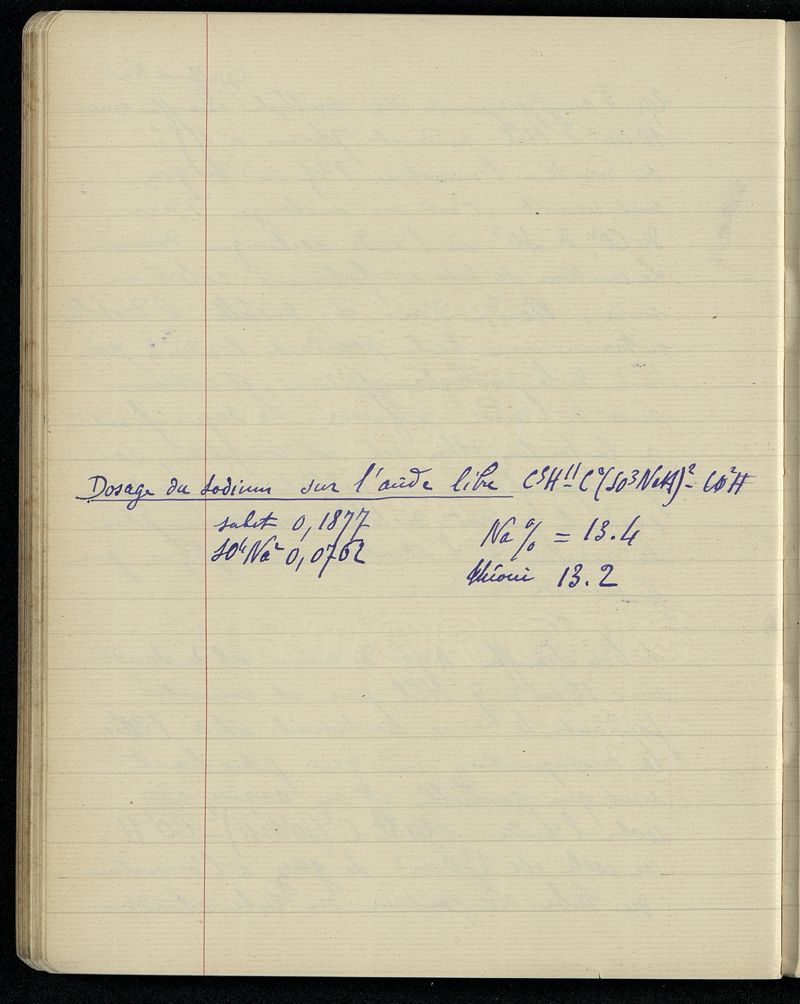 Dosage du sodium sur l'acide libre C⁵H¹¹-C²(SO³NaH)²-CO²H
subst 0,1877
SO⁴Na² 0,0762
Na % = 13.4
théorie 13.2